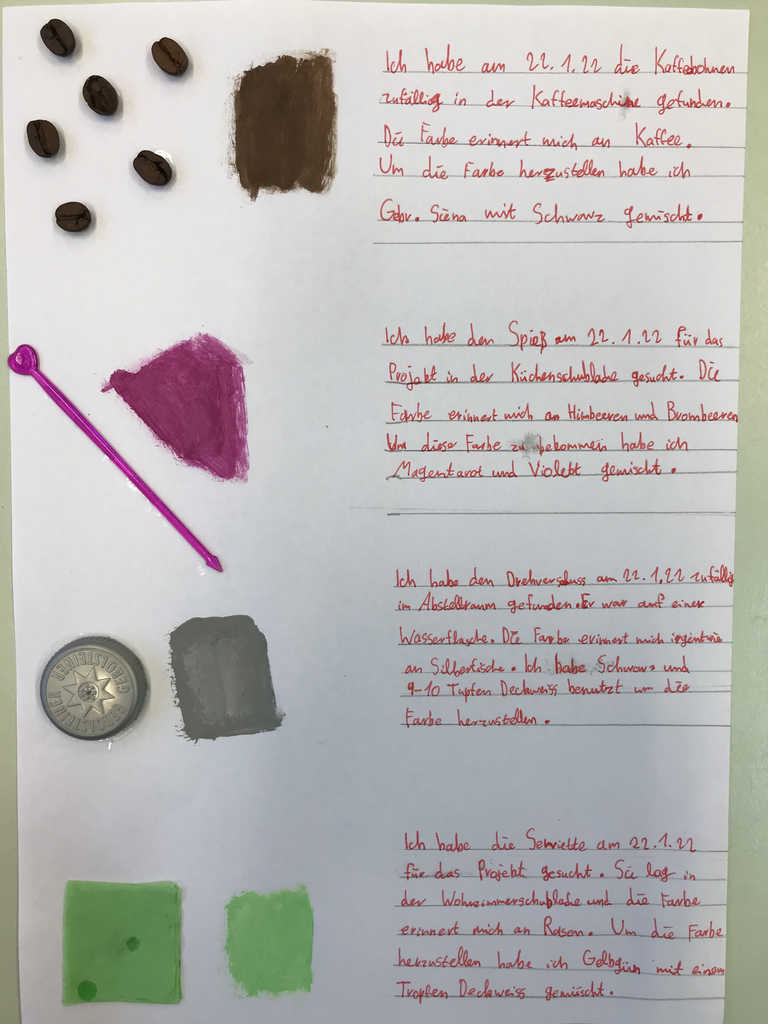 Ich habe am 22.1.22 die Kaffebohnen
zufällig in der Kaffeemaschine gefunden.
Die Farbe erinnert mich an Kaffee.
Um die Farbe herzustellen habe ich
Gebr. Siena mit Schwarz gemischt.
Ich habe den Spieß am 22.1.22 für das
Projekt in der Küchenschublade gesucht. Die
Farbe erinnert mich an Himbeeren und Brombeeren
Um diese Farbe zu bekommen habe ich
Magentarot und Violett gemischt.
Ich habe den Drehverschluss am 22.1.22 zufällig
im Abstellraum gefunden. Er war auf einer
Wasserflasche. Die Farbe erinnert mich irgentwie
an Silberfische. Ich habe Schwarz und
9-10 Tupfen Deckweiss benutzt um die
Farbe herzustellen.
GEROLSTEINER GEROLSTEINER
Ich habe die Serviette am 22.1.22
für das Projekt gesucht. Sie lag in
der Wohnzimmerschublade und die Farbe
erinnert mich an Rasen. Um die Farbe
herzustellen habe ich Gelbgrün mit einem
Tropfen Deckweiss gemischt.